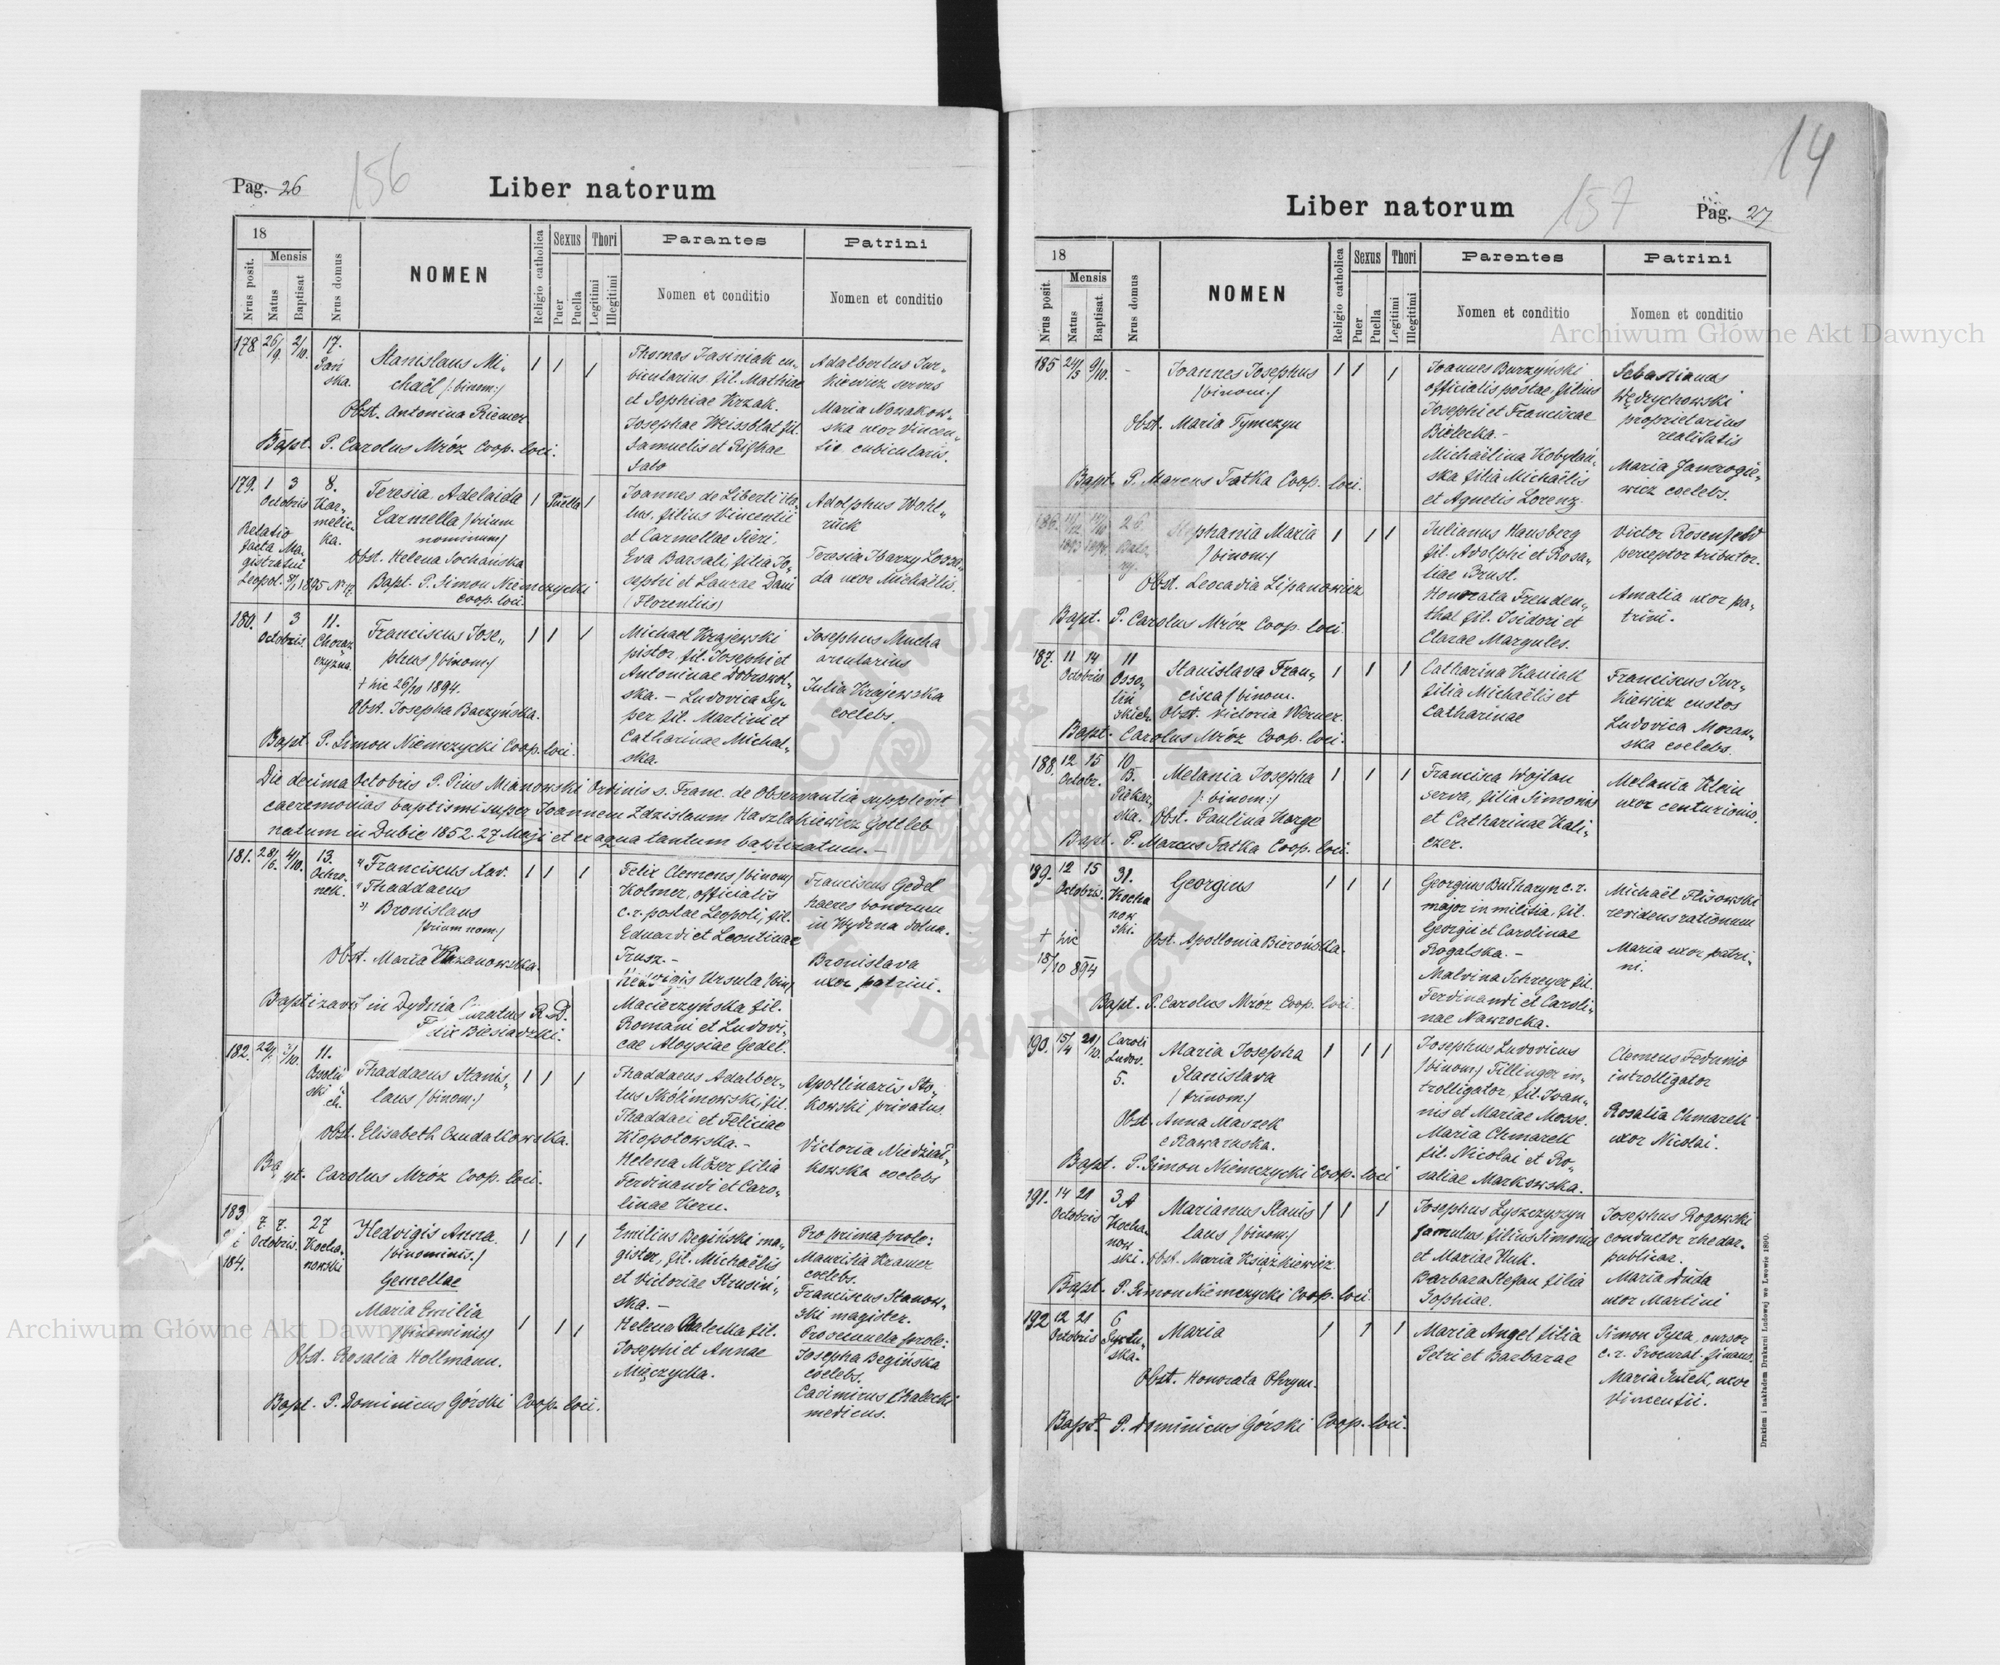 Pag. 26
156
Liber natorum
18
Mensis
Nrus posit.
Natus
Baptisat
Nrus domus
NOMEN
Religio catholica
Sexus
Puer
Puella
Thori
Legitimi
Illegitimi
Parantes
Nomen et conditio
Patrini
Nomen et conditio
178. 26/9. 2/10. 17.
Pańska.
Stanislaus Mi-
chaël /:binom:/
Obst. Antonina Riemer
Bapt. P. Carolus Mróz Coop. loci.
1 1 1
Thomas Jasiniak cu-
bicularius fil. Mathiae
et Sophiae Krzak.
Josephae Weissblat fil.
Samuelis et
Salo
Adalbertus Jur-
kiewicz servus
Maria Nowakow-
ska uxor Vincen-
tii cubicularis.
179. 1 3 8.
Octobris
Kar-
melic-
ka.
Relatio
facta Ma-
gistratui
Leopol. 1895 Nr 17.
Teresia Adelaida
Carmella /trium
nominum/
Obst. Helena Sochańska
Bapt. P. Simon Niemczycki
coop. loci.
1 Puella 1
Joannes de Liberti ita-
lus, filius Vincentii
et Carmellae Sieri.
Eva Barsali, filia Jo-
sephi et Laurae Dani
(Florentiis)
Adolphus Wohl-
rück
Teresia Harzy Lozze-
da uxor Michaëlis.
180. 1 3 11.
Octobris.
Chorąż
czyzna.
Franciscus Jose-
phus /binom/
+ hic 26/10 1894.
Obst. Josepha Baczyńska.
Bapt P. Simon Niemczycki Coop. loci.
1 1 1
Michael Krajewski
pistor, fil. Josephi et
Antoninae Dobrowol-
ska. - Ludovica Sy-
per fil. Martini et
Catharinae Michal-
ska.
Josephus Mucha
arcularius
Julia Krajewska
coelebs.
Die decima Octobris P. Pius Mianowski Ordinis s. Franc. de Observantia supplevit
caeremonias baptismi super Joannem Zdzislaum Haszlakiewicz Gottleb
natum in Dubie 1852. 27 Maji et ex aqua tantum baptizatum.-
181. 28/6. 4/10. 13.
Ochro-
nek.
Franciscus Xav.
Thaddaeus
Bronislaus
/trium nom./
Obst. Maria Kazanowska.
Baptizavit in Dydnia Curatus R. D.
Felix Biesiadzki.
1 1 1
Felix Clemens /binom/
Holmer, officialis
c. r. postae Leopoli, fil.
Eduardi et Leontinae
Trusz.-
Hedvigis Ursula /bin/
Macierzyńska fil.
Romani et Ludovi-
cae Aloysiae Gedel.
Franciscus Gedel
haeres bonorum
in Wydrna dolna.
Bronislava
uxor patrini.
182. 11.
Ossoliń
skich.
Thaddaeus Stanis-
laus /binom:/
Obst. Elisabeth Czudakowska.
Bapt. Carolus Mróz Coop. loci.
1 1 1
Thaddaeus Adalber-
tus Skólimowski fil.
Thaddaei et Feliciae
Kłopotowska.-
Helena Möser filia
Ferdinandi et Caro-
linae Kern.
Apollinaris Sto-
kowski privatus.
Victoria Niedział-
kowska coelebs
183 7. 7. 27
et
184.
Octobris.
Kocha-
nowski
Hedvigis Anna.
/binominis./
Gemellae
Maria Emilia
/binominis/
Obst. Rosalia Hollmann.
Bapt. P. Dominicus Górski Coop. loci.
1 1 1
1 1 1
Emilius Begiński ma-
gister, fil. Michaëlis
et Victoriae Strusiń-
ska.-
Helena Chalecka fil.
Josephi et Annae
Mięczycka.
Pro prima prole:
Mauritia Kramer
coelebs.
Franciscus Stanow-
ski magister.
Pro secunda prole:
Josepha Begińska
coelebs.
Casimirus Chalecki
medicus.
14
Liber natorum
157
Pag. 27
18
Mensis
Nrus posit.
Natus
Baptisat.
Nrus domus
NOMEN
Religio catholica
Sexus
Puer
Puella
Thori
Legitimi
Illegitimi
Parentes
Nomen et conditio
Patrini
Nomen et conditio
185 24/3 9/10. -
Joannes Josephus
/binom:/
Obst. Maria Tymczyn
Bapt. P. Marcus Fatka Coop. loci.
1 1 1
Joannes Burzyński
officialis postae, filius
Josephi et Franciscae
Bielecka.-
Michaëlina Kobylań-
ska filia Michaëlis
et Agnetis Lorenz.
Sebastianus
Wędrychowski
proprietarius
realitatis
Maria Jamrogie-
wicz coelebs.
186. 26.
Bato-
ry.
Stephania Maria
/binom:/
Obst. Leocadia Lipanowicz
Bapt. P. Carolus Mróz Coop. loci
1 1 1
Julianus Hausberg
fil. Adolphi et Rosa-
liae Brust.
Honorata Freuden-
thal fil. Isidori et
Clarae Margules.
Victor Rosenfeld
perceptor tributor.
Amalia uxor pa-
trini.
187. 11 14 11
Octobris
Osso-
liń
skich.
Stanislava Fran-
cisca /binom.
Obst. Victoria Werner.
Bapt. Carolus Mróz Coop. loci.
1 1 1
Catharina Kaniak
filia Michaëlis et
Catharinae
Franciscus Jur-
kiewicz custos
Ludovica Moran-
ska coelebs.
188. 12 15 10.
Octobr. B.
Piekar-
ska.
Melania Josepha
/:binom:/
Obst. Paulina Horge
Bapt. P. Marcus Fatka Coop. loci.
1 1 1
Francisca Wojtan
serva, filia Simonis
et Catharinae Kali-
czer.
Melania Klein
uxor centurionis.
189. 12 15 31.
Octobris.
Kocha
now
ski.
+ hic
15/10 894
Georgius
Obst. Apollonia Bierońska.
Bapt. P. Carolus Mróz Coop. loci
1 1 1
Georgius Butharyn c. r.
major in militia, fil.
Georgii et Carolinae
Rogalska.-
Malvina Schreyer fil.
Ferdinandi et Caroli-
nae Nawrocka.
Michaël Flisowski
revidens rationum
Maria uxor patri-
ni.
190. 15/4 20/10. Caroli
Ludov.
5.
Maria Josepha
Stanislava
/trinom:/
Obst. Anna Maszek
e Rawaruska.
Bapt. P. Simon Niemczycki Coop. loci
1 1 1
Josephus Ludovicus
/binom/ Tillinger in-
trolligator, fil. Joan-
nis et Mariae Mosse.
Maria Chmarek
fil. Nicolai et Ro-
saliae Markowska.
Clemens Fedunio
introlligator
Rosalia Chmarek
uxor Nicolai.
191. 14 21 3 A
Octobris
Kocha-
now
ski.
Marianus Stanis
laus /binom/
Obst. Maria Książkiewicz.
Bapt. P. Simon Niemczycki Coop. loci.
1 1 1
Josephus Łyszczyszyn
famulus, filius Simonis
et Mariae Kluk.
Barbara Stefan filia
Sophiae.
Josephus Rogowski
conductor rhedar.
publicar.
Maria Duda
uxor Martini
192 12 21 6
Octobris
ska.
Maria
Obst. Honorata Ohrym.
Bapt. P. Dominicus Górski Coop. loci.
1 1 1
Maria Angel filia
Petri et Barbarae
Simon Pyca, cursor
c. r. Procurat. finans.
Maria Jutek, uxor
Vincentii.
Drukiem i nakładem Drukarni Ludowej we Lwowie 1890.
Archiwum Główne Akt Dawnych
Archiwum Główne Akt Dawnych
ARCHIWUM GŁÓWNE AKT DAWNYCH